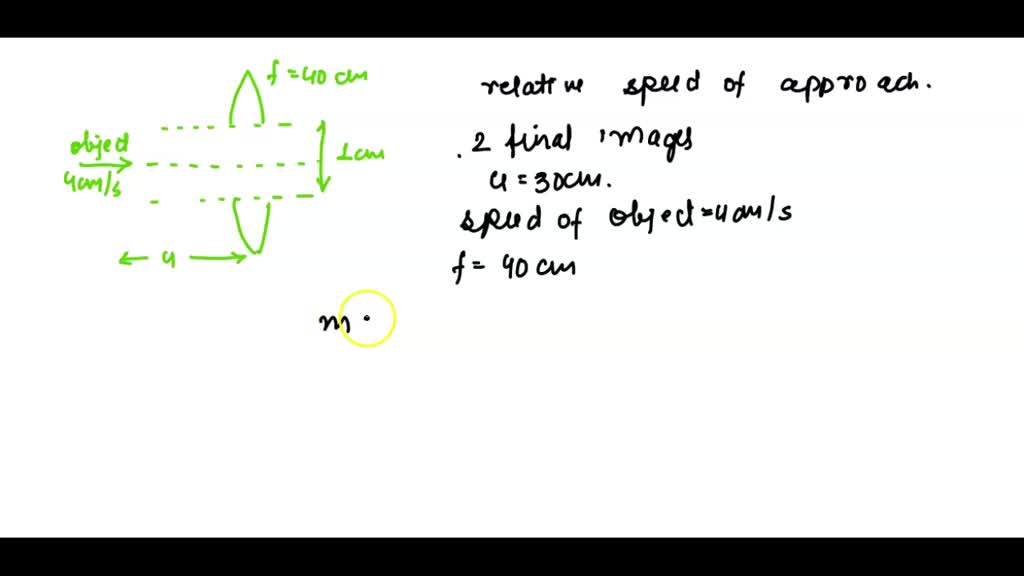 f = 40 cm
object
4cm/s
1cm
u
relative speed of approach.
. 2 final images
u = 30cm.
speed of object = 4cm/s
f = 40 cm
m